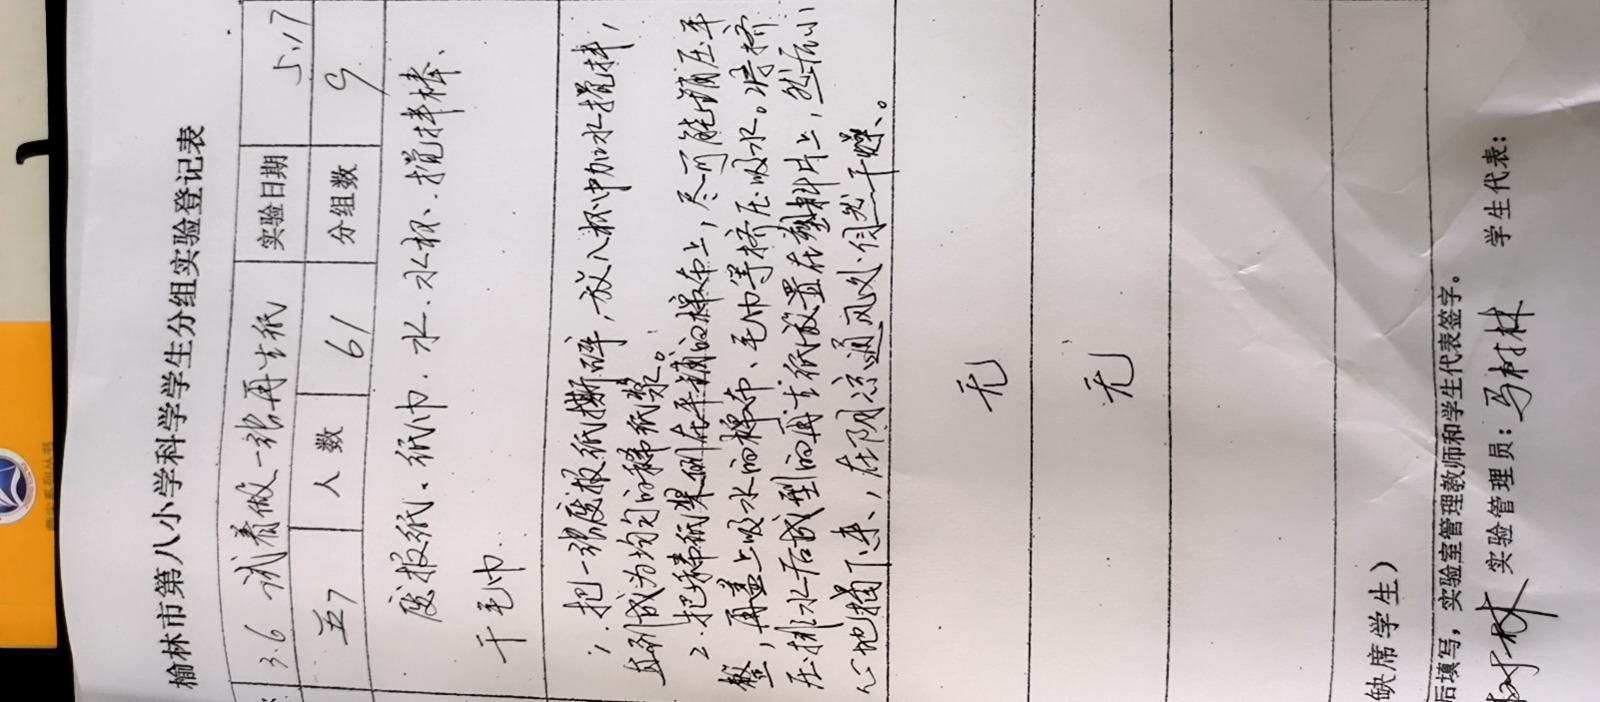 榆林市第八小学科学学生分组实验登记表
3.6 试着做一张再生纸 实验日期 5.17
五7 人数 61 分组数 9
废报纸、纸巾、水、水杯、搅拌棒、
干毛巾
1. 把一张废报纸撕碎，放入杯中加水搅拌，
直到成为均匀的稀纸浆。
2. 把稀纸浆倒在平铺的棉布上，尽可能铺压平
整，再盖上吸水的棉布、毛巾等挤压吸水。将挤
压排水后成型的再生纸放置在塑料片上，然后小
心地揭下来，在阴凉通风处自然干燥。
无
无
缺席学生）
后填写，实验室管理教师和学生代表签字。
实验管理员：马树林 学生代表：